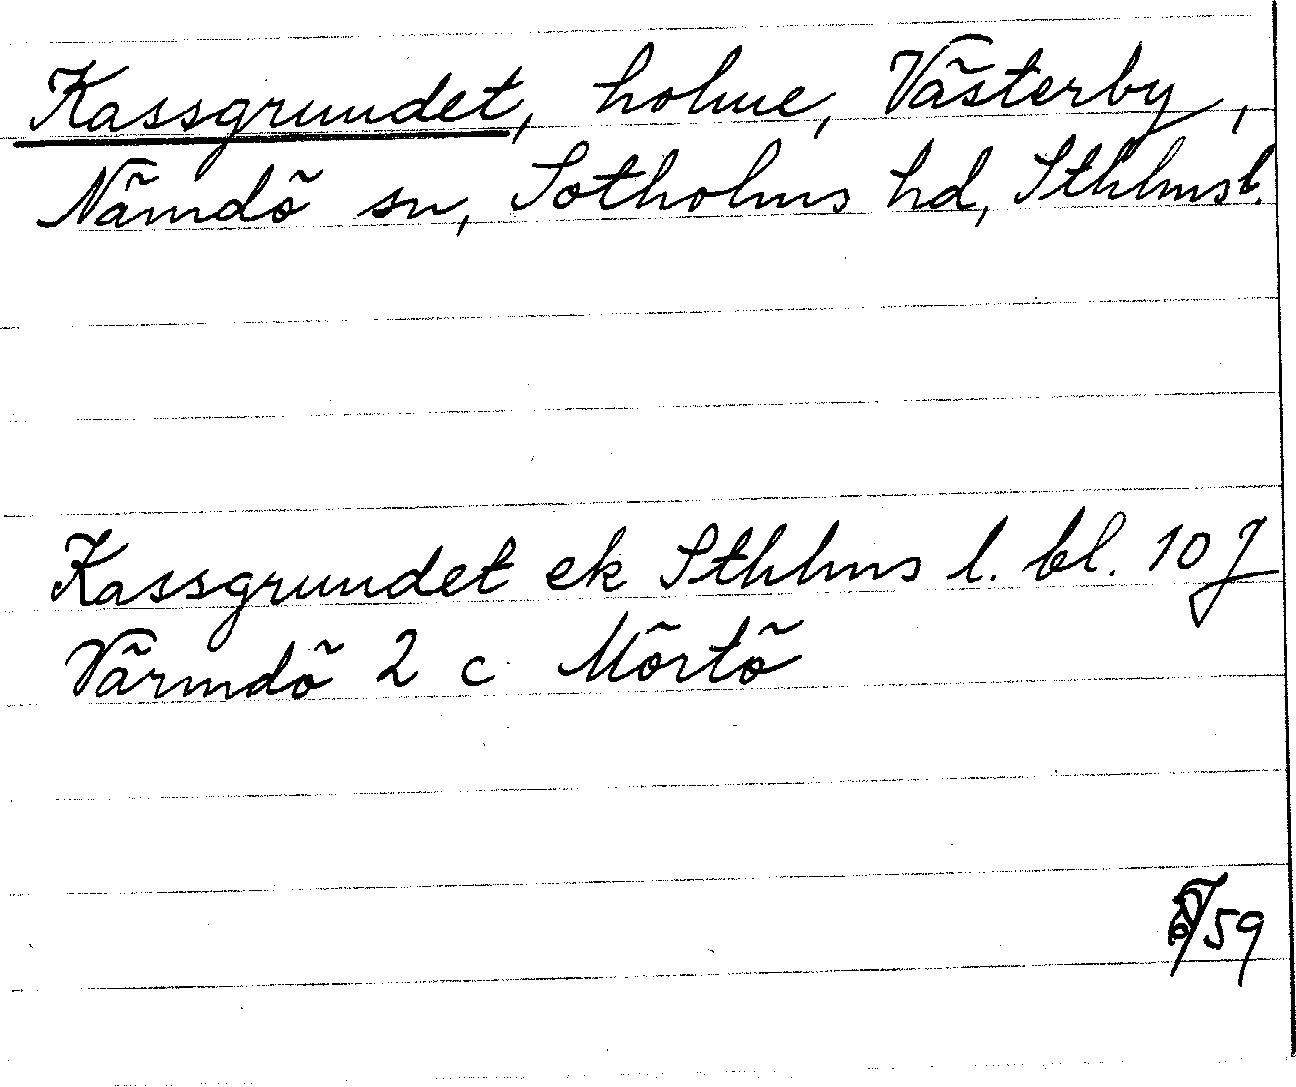 Kassgrundet, holme, Västerby,
Nämdö sn, Sotholms hd, Sthlmsl.
Kassgrundet ek Sthlms l. bl. 10 J
Värmdö 2 c Mörtö
59